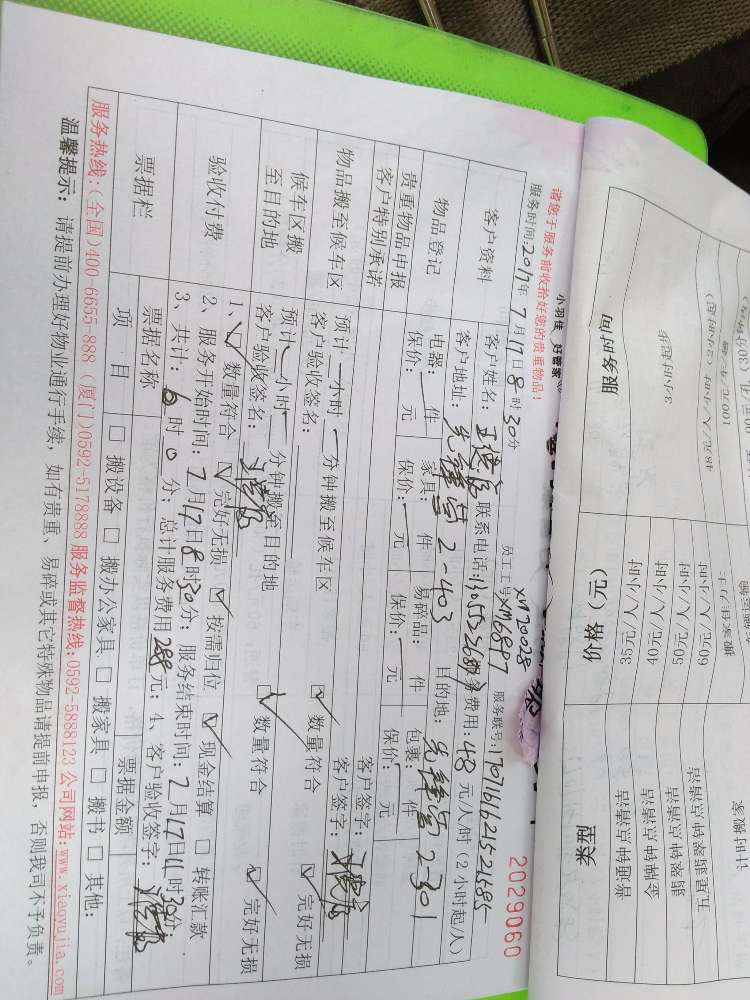 小羽佳 好管家
请您于服务前收拾好您的贵重物品!
2029060
服务时间:2017年7月17日8时30分
员工工号XM20028
XM6897
服务联号:170716162521685
客户资料
客户姓名:
联系电话:
费用:48元/人/时(2小时起/人)
客户地址:先锋营2-403
目的地:先锋营2-301
物品登记
电器: 件 家具: 件 易碎品: 件 包裹: 件
保价: 元 保价: 元 保价: 元 保价: 元
贵重物品申报
客户特别承诺
客户签字:
物品搬至候车区
预计 小时 分钟搬至候车区
客户验收签名:
数量符合 完好无损
客户签字:
候车区搬
至目的地
预计 小时 分钟搬至目的地
客户验收签名:
数量符合 完好无损
验收付费
1、 数量符合 完好无损 按需归位 现金结算 转账汇款
2、服务开始时间:7月17日8时30分;服务结束时间:7月17日11时30分
3、共计:6时0分;总计服务费用288元;4、客户验收签字:
票据栏
票据名称
票据金额
项 目
搬设备 搬办公家具 搬家具 搬书 其他:
服务热线:(全国)400-6655-888 (厦门)0592-5178888 服务监督热线:0592-5888123 公司网站:www.xiaoyujia.com
温馨提示: 请提前办理好物业通行手续,如有贵重、易碎或其它特殊物品请提前申报,否则我司不予负责。
类型
价格(元)
服务时间
普通钟点清洁
35元/人/小时
3小时起步
金牌钟点清洁
40元/人/小时
翡翠钟点清洁
50元/人/小时
五星翡翠钟点清洁
60元/人/小时
计时搬家